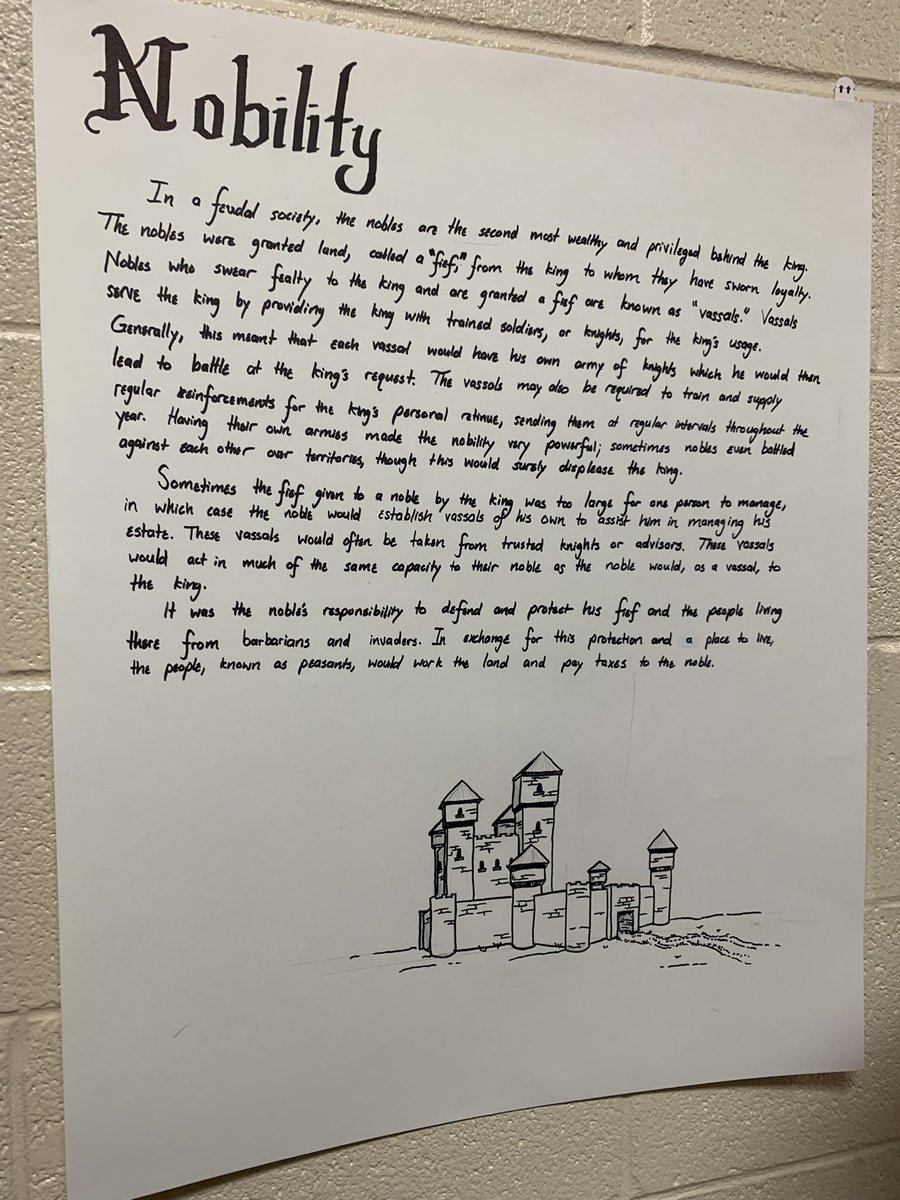 Nobility
In a feudal society, the nobles are the second most wealthy and privileged behind the king.
The nobles were granted land, called a "fief," from the king to whom they have sworn loyalty.
Nobles who swear fealty to the king and are granted a fief are known as "vassals." Vassals
serve the king by providing the king with trained soldiers, or knights, for the king's usage.
Generally, this meant that each vassal would have his own army of knights which he would then
lead to battle at the king's request. The vassals may also be required to train and supply
regular reinforcements for the king's personal retinue, sending them at regular intervals throughout the
year. Having their own armies made the nobility very powerful; sometimes nobles even battled
against each other over territories, though this would surely displease the king.
Sometimes the fief given to a noble by the king was too large for one person to manage,
in which case the noble would establish vassals of his own to assist him in managing his
estate. These vassals would often be taken from trusted knights or advisors. These vassals
would act in much of the same capacity to their noble as the noble would, as a vassal, to
the king.
It was the noble's responsibility to defend and protect his fief and the people living
there from barbarians and invaders. In exchange for this protection and a place to live,
the people, known as peasants, would work the land and pay taxes to the noble.